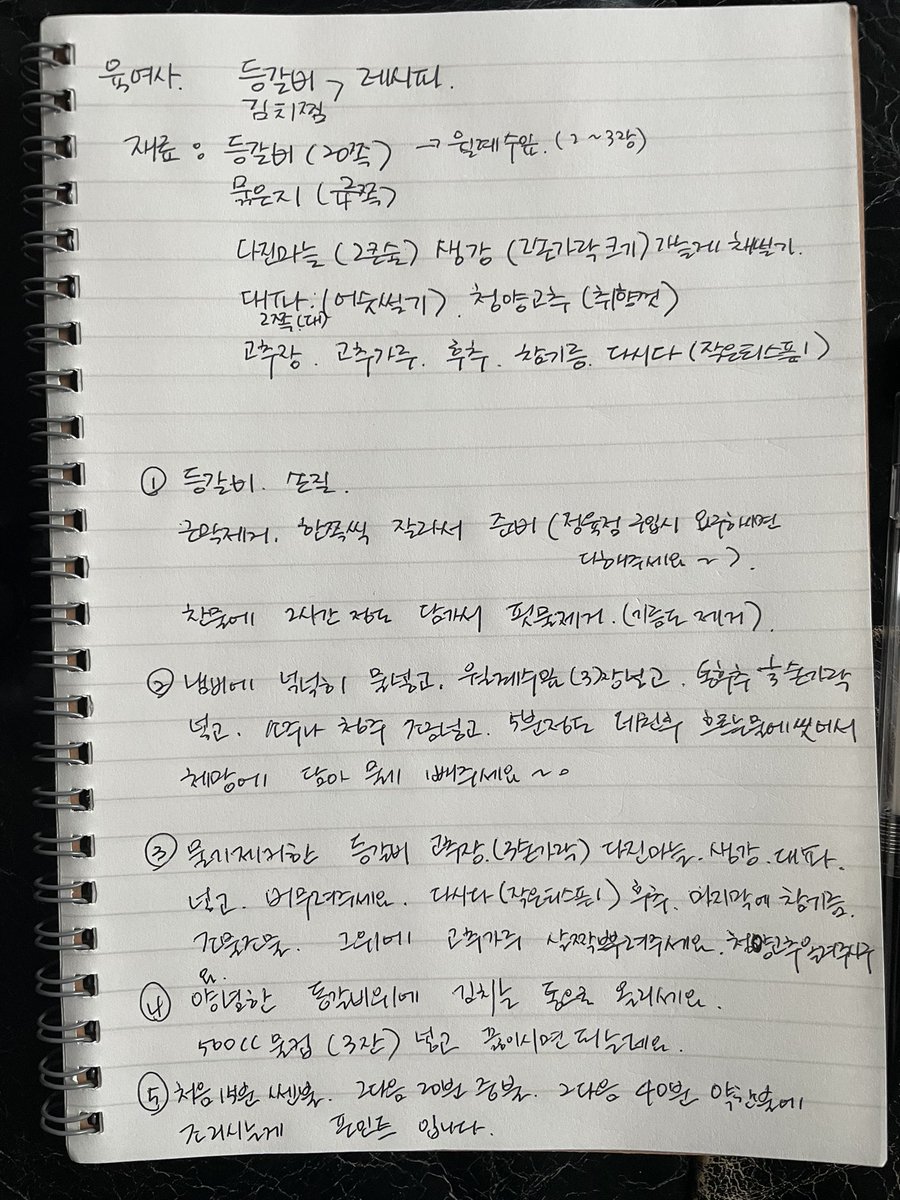 육여사. 등갈비 레시피.
김치찜
재료 : 등갈비 (20쪽) → 월계수잎. (2~3장)
묵은지 (쪽)
다진마늘 (2큰술) 생강 (크기) 가늘게 채썰기.
대파. (어슷썰기). 청양고추 (취향껏)
2쪽(대)
고추장. 고추가루. 후추. 참기름. 다시다 (작은티스픈1)
① 등갈비. 손질.
근막제거. 한쪽씩 잘라서 준비 (정육점 구입시 요구하시면
다해주세요~).
찬물에 2시간 정도 담가서 핏물제거. (기름도 제거).
② 냄비에 넉넉히 물넣고. 월계수잎 (3)장넣고. 통후추 손가락
넣고. 청주 넣고. 5분정도 데친후 흐르는물에씻어서
체망에 담아 물기 빼주세요~。
③ 물기제거한 등갈비 고추장. (3손가락) 다진마늘. 생강. 대파.
넣고. 버무려주세요. 다시다 (작은티스픈1) 후추. 마지막에 참기름.
그위에 고추가루 살짝뿌려주세요.
요.
④ 양념한 등갈비위에 김치는 통으로 올리세요.
500cc 물컵 (3잔) 넣고 끓이시면 되는데요.
⑤ 처음 15분 쎈불. 그다음 20분 중불. 그다음 40분 약한불에
조리시는게 포인트 입니다.